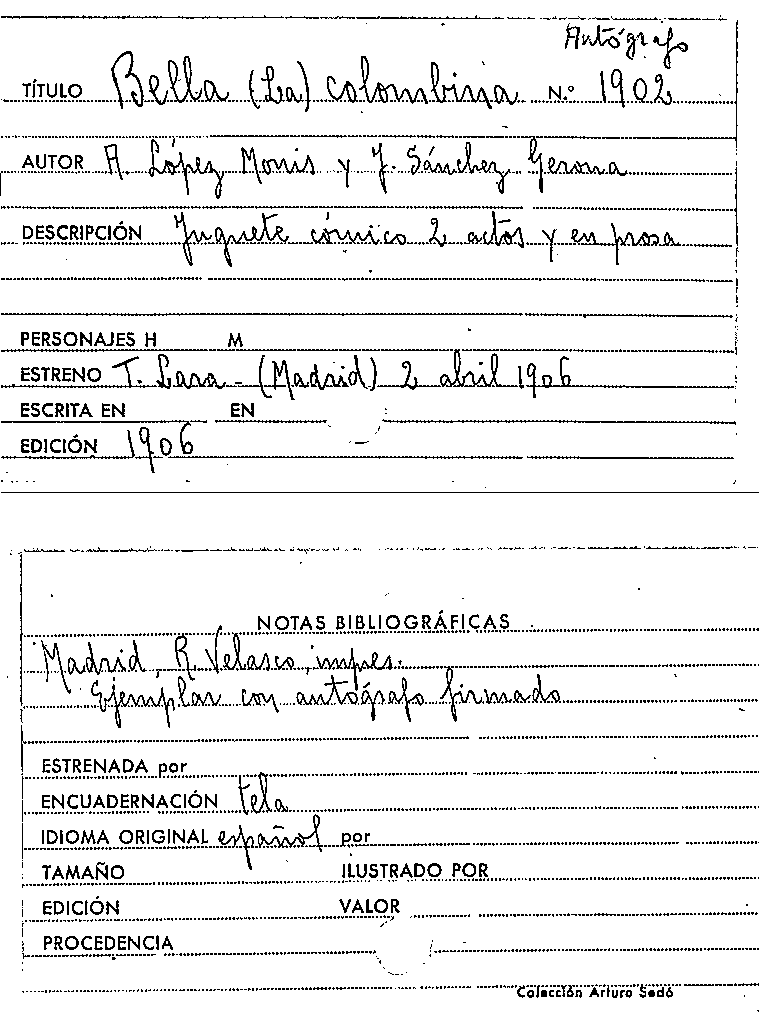 Autógrafo
TÍTULO Bella (La) colombina N.º 1902
AUTOR A. López Monis y J. Sánchez Gerona
DESCRIPCIÓN Juguete cómico 2 actos y en prosa
PERSONAJES H M
ESTRENO T. Lara - (Madrid) 2 abril 1906
ESCRITA EN EN
EDICIÓN 1906
NOTAS BIBLIOGRÁFICAS
Madrid, R. Velasco, impres.
Ejemplar con autógrafo firmado
ESTRENADA por
ENCUADERNACIÓN tela
IDIOMA ORIGINAL español por
TAMAÑO ILUSTRADO POR
EDICIÓN VALOR
PROCEDENCIA
Colección Arturo Sedó